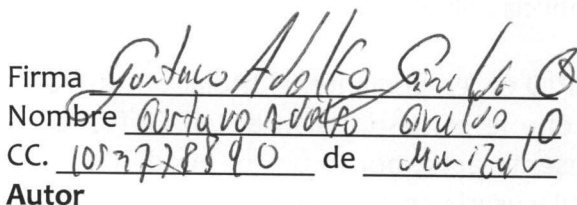 Firma Gustavo Adolfo Giraldo O
Nombre Gustavo Adolfo Giraldo O
CC. 1053778890 de Manizales
Autor